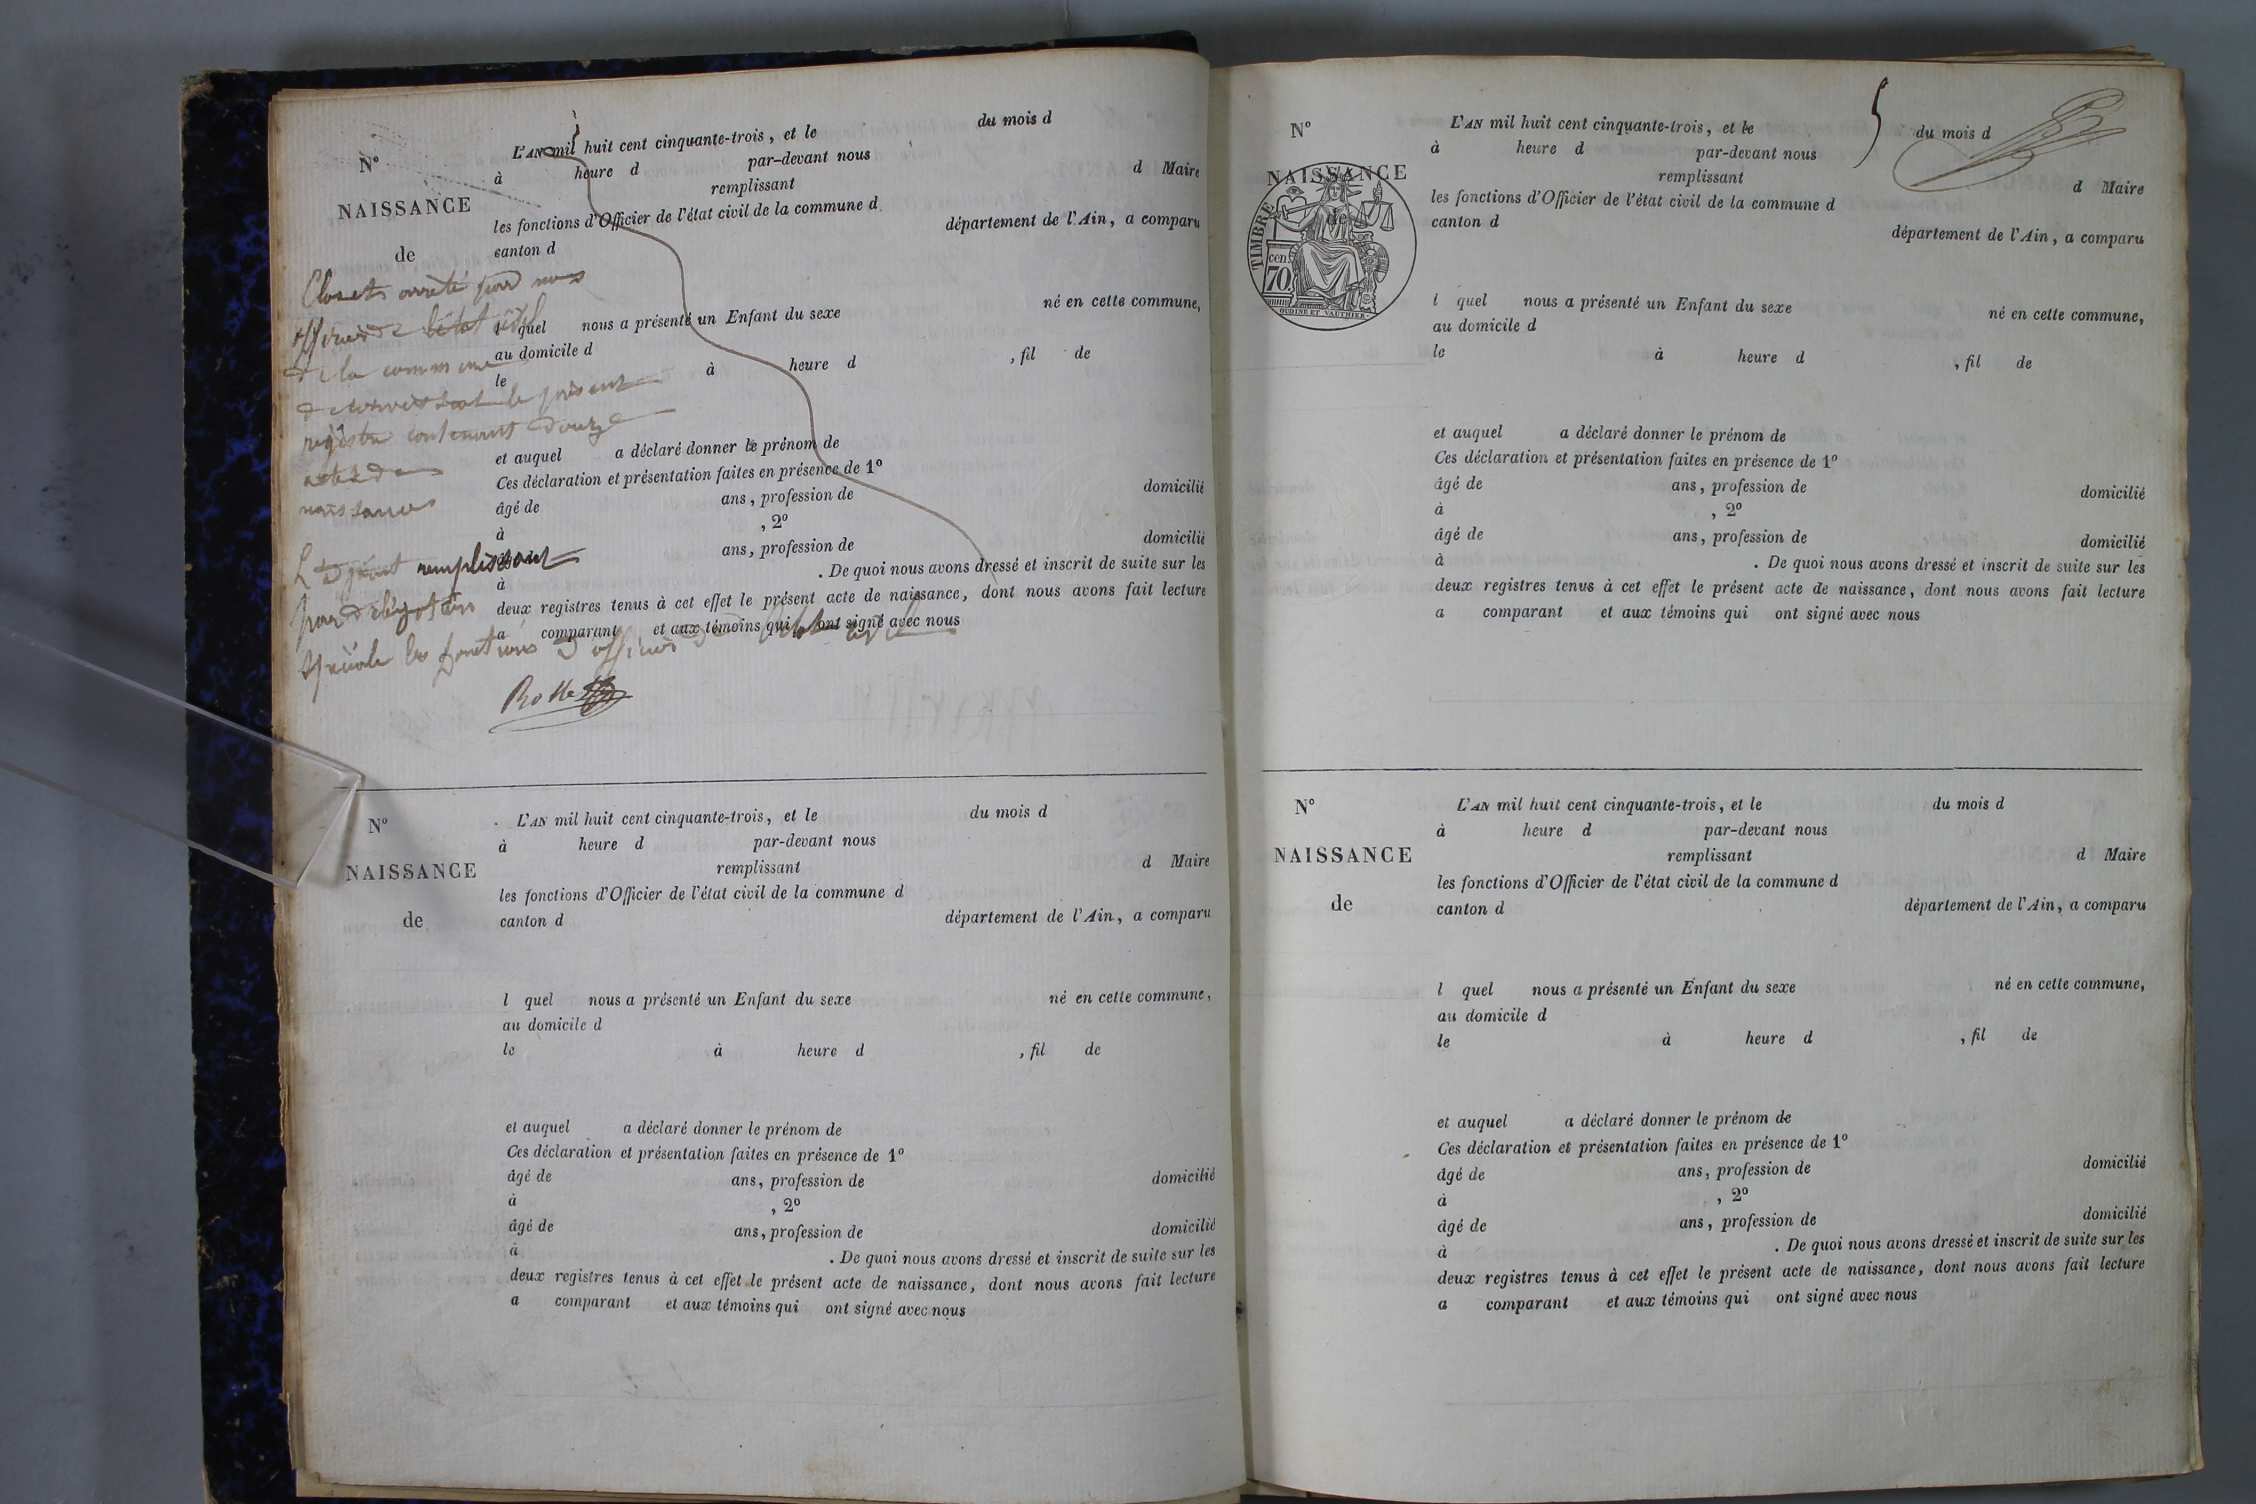 N°
NAISSANCE
de
L'AN mil huit cent cinquante-trois, et le du mois d
à heure d par-devant nous
remplissant d Maire
les fonctions d'Officier de l'état civil de la commune d
canton d département de l'Ain, a comparu
l quel nous a présenté un Enfant du sexe né en cette commune,
au domicile d
le à heure d , fil de
et auquel a déclaré donner le prénom de
Ces déclaration et présentation faites en présence de 1°
âgé de ans, profession de domicilié
à , 2°
ans, profession de domicilié
à . De quoi nous avons dressé et inscrit de suite sur les
deux registres tenus à cet effet le présent acte de naissance, dont nous avons fait lecture
a comparant et aux témoins qui ont signé avec nous
Clos et arrêté par nous
officier de l'état civil
de la commune
le présent
registre contenant douze
actes de
naissances
L'adjoint remplissant
par délégation
spéciale les fonctions d'officier de l'état civil
N°
NAISSANCE
de
L'AN mil huit cent cinquante-trois, et le du mois d
à heure d par-devant nous
remplissant d Maire
les fonctions d'Officier de l'état civil de la commune d
canton d département de l'Ain, a comparu
l quel nous a présenté un Enfant du sexe né en cette commune,
au domicile d
le à heure d , fil de
et auquel a déclaré donner le prénom de
Ces déclaration et présentation faites en présence de 1°
âgé de ans, profession de domicilié
à , 2°
âgé de ans, profession de domicilié
à . De quoi nous avons dressé et inscrit de suite sur les
deux registres tenus à cet effet le présent acte de naissance, dont nous avons fait lecture
a comparant et aux témoins qui ont signé avec nous
5
N°
NAISSANCE
de
TIMBRE
70 cen.
OUDINE ET VAUTHIER.
L'AN mil huit cent cinquante-trois, et le du mois d
à heure d par-devant nous
remplissant d Maire
les fonctions d'Officier de l'état civil de la commune d
canton d département de l'Ain, a comparu
l quel nous a présenté un Enfant du sexe né en cette commune,
au domicile d
le à heure d , fil de
et auquel a déclaré donner le prénom de
Ces déclaration et présentation faites en présence de 1°
âgé de ans, profession de domicilié
à , 2°
âgé de ans, profession de domicilié
à . De quoi nous avons dressé et inscrit de suite sur les
deux registres tenus à cet effet le présent acte de naissance, dont nous avons fait lecture
a comparant et aux témoins qui ont signé avec nous
N°
NAISSANCE
de
L'AN mil huit cent cinquante-trois, et le du mois d
à heure d par-devant nous
remplissant d Maire
les fonctions d'Officier de l'état civil de la commune d
canton d département de l'Ain, a comparu
l quel nous a présenté un Enfant du sexe né en cette commune,
au domicile d
le à heure d , fil de
et auquel a déclaré donner le prénom de
Ces déclaration et présentation faites en présence de 1°
âgé de ans, profession de domicilié
à , 2°
âgé de ans, profession de domicilié
à . De quoi nous avons dressé et inscrit de suite sur les
deux registres tenus à cet effet le présent acte de naissance, dont nous avons fait lecture
a comparant et aux témoins qui ont signé avec nous